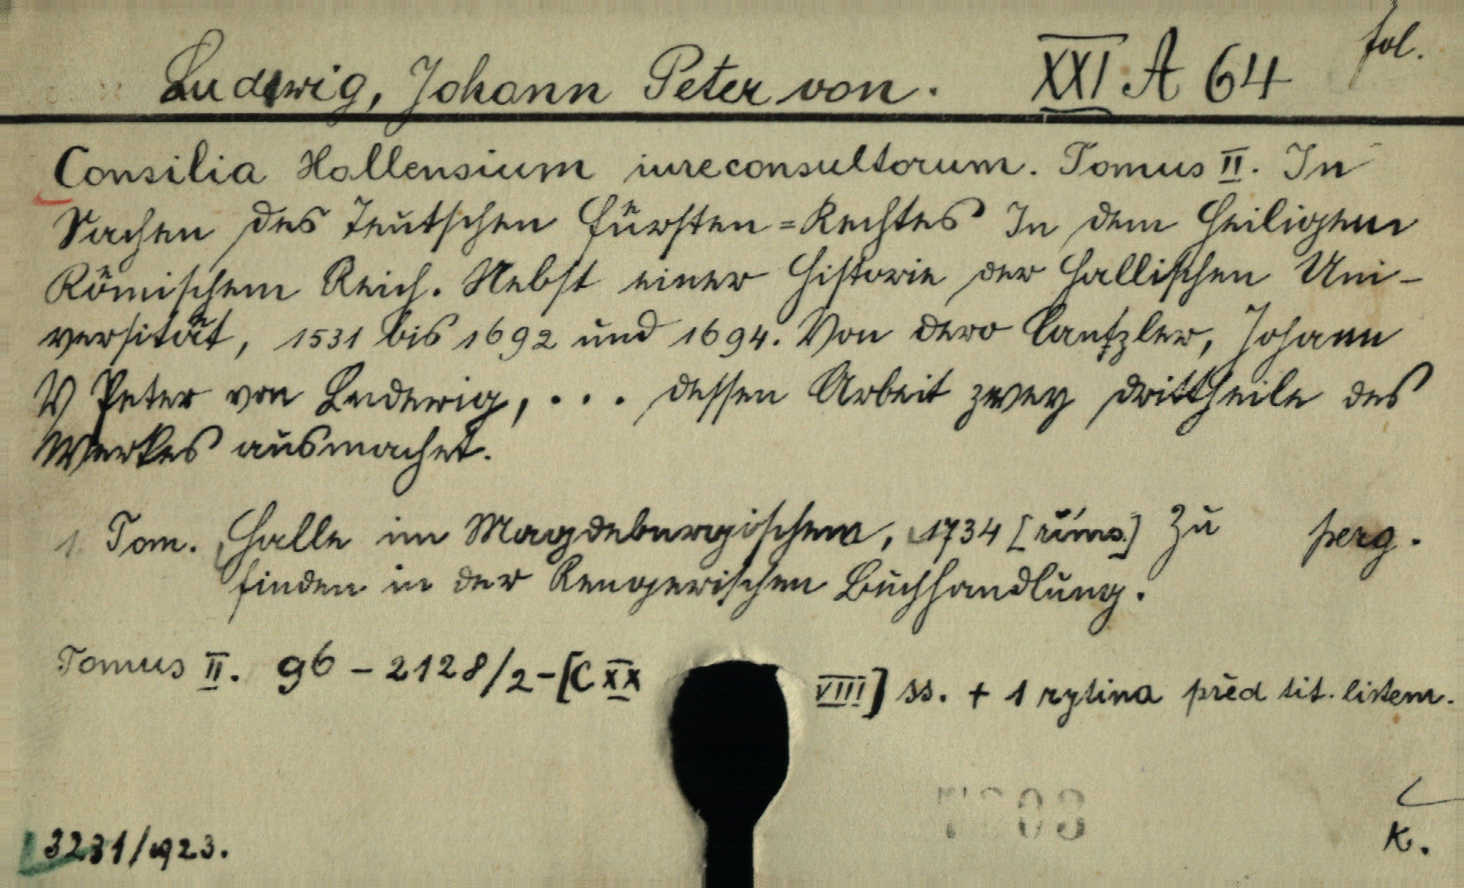 Ludewig, Johann Peter von. XXI A 64 fol.
Consilia Hallensium iureconsultorum. Tomus II. In
Sachen des Teutschen Fürsten=Rechtes In dem Heiligem
Römischem Reich. Nebst einer Historie der Hallischen Uni-
versität, 1531 bis 1692 und 1694. Von dero Cantzler, Johann
Peter von Ludewig, ... dessen Arbeit zwey drittheile des
Werkes ausmachet.
1 Tom. Halle im Magdeburgischem, 1734 [říms.] Zu perg.
finden in der Rengerischen Buchhandlung.
Tomus II. 96 - 2128/2 - [C XX VIII] ss. + 1 rytina před tit. listem.
3231/1923. K.